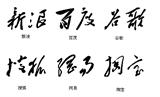 新浪 百度 谷歌
新浪 百度 谷歌
搜狐 网易 淘宝
搜狐 网易 淘宝